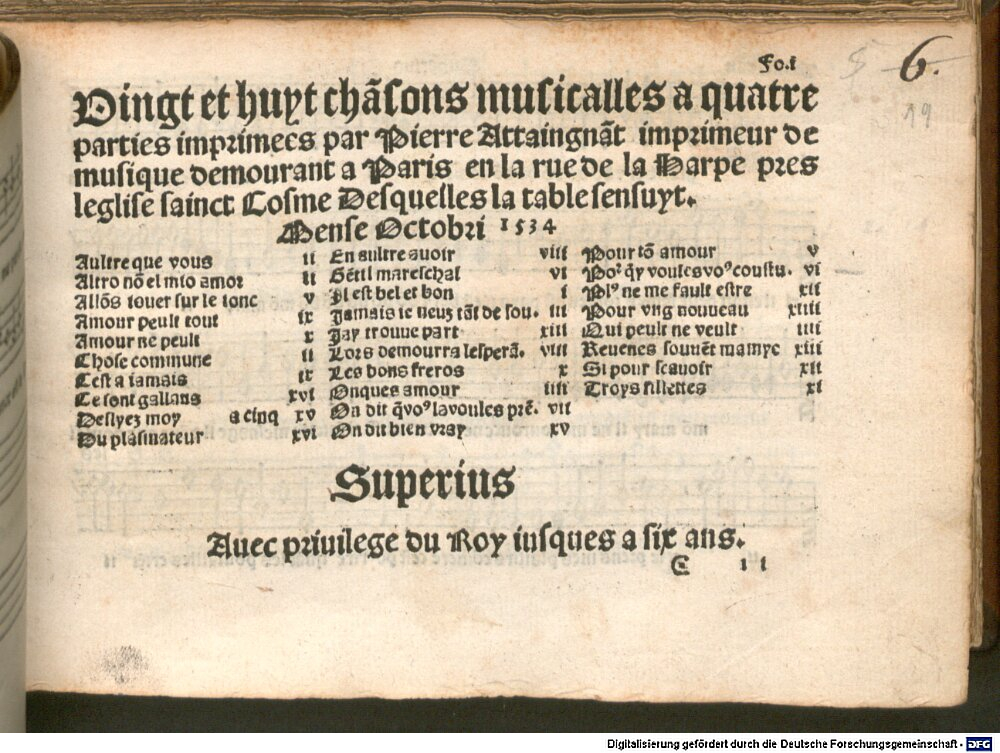 Fo.i
5 6.
19
Vingt et huyt chãsons musicalles a quatre
parties imprimees par Pierre Attaingnãt imprimeur de
musique demourant a Paris en la rue de la Harpe pres
leglise sainct Cosme Desquelles la table sensuyt.
Mense Octobri 1534
Aultre que vous ii
Altro nõ el mio amor ii
Allõs iouer sur le ionc v
Amour peult tout ix
Amour ne peult x
Chose commune ii
Cest a iamais ix
Ce sont gallans xvi
Deslyez moy a cinq xv
Du plasmateur xvi
En aultre avoir viii
Gẽtil mareschal vi
Il est bel et bon i
Jamais ie neuz tãt de sou. iii
Jay trouve part xiii
Lors demourra lesperã. viii
Les bons freros x
Onques amour iiii
On dit q̃ voꝰ la voules prẽ. vii
On dit bien vray xv
Pour tõ amour v
Poꝛ qͥy voules voꝰ coustu. vi
Plꝰ ne me fault estre xii
Pour vng nouueau xiiii
Qui peult ne veult iiii
Reuenes souuẽt mamye xiii
Si pour scauoir xii
Troys fillettes xi
Superius
Auec priuilege du Roy iusques a six ans.
C ii
Digitalisierung gefördert durch die Deutsche Forschungsgemeinschaft - DFG